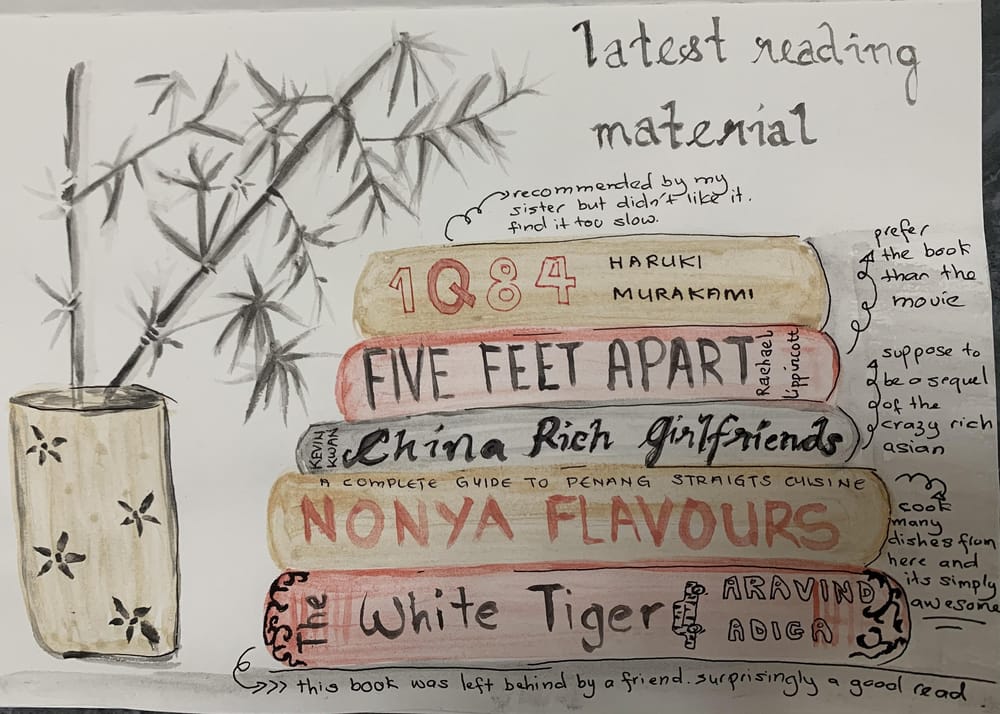 latest reading
material
recommended by my
sister but didn't like it.
find it too slow.
1Q84
HARUKI
MURAKAMI
prefer
the book
than the
movie
FIVE FEET APART
Rachael
Lippincott
suppose to
be a sequel
of the
crazy rich
asian
KEVIN
KWAN
China Rich Girlfriends
A COMPLETE GUIDE TO PENANG STRAIGTS CUISINE
NONYA FLAVOURS
cook
many
dishes from
here and
its simply
awesome
The
White Tiger
ARAVIND
ADIGA
this book was left behind by a friend. surprisingly a good read